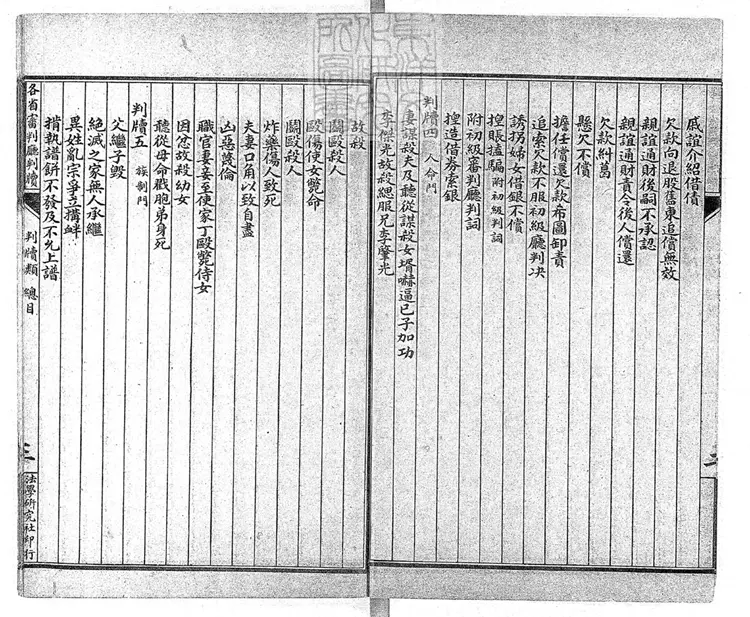 戚誼介紹借債
欠款向退股舊東追償無效
親誼通財後嗣不承認
親誼通財責令後人償還
欠款糾葛
懸欠不償
擔任償還欠款希圖卸責
追索欠款不服初級廳判决
誘拐婦女借銀不償
捏賬搕騙 附初級判詞
附初級審判廳判詞
捏造借券索銀
判牘四 人命門
妻謀殺夫及聽從謀殺女壻嚇逼已子加功
李傑光故殺緦服兄李肇光
二
故殺
鬬毆殺人
毆傷使女斃命
鬬毆殺人
炸藥傷人致死
夫妻口角以致自盡
凶惡蔑倫
職官妻妾至使家丁毆斃侍女
因忿故殺幼女
聽從母命戳胞弟身死
判牘五 族制門
父繼子毀
絕滅之家無人承繼
異姓亂宗爭立搆衅
掯執譜餅不發及不允上譜
各省審判廳判牘
判牘類 總目
三
法學研究社印行